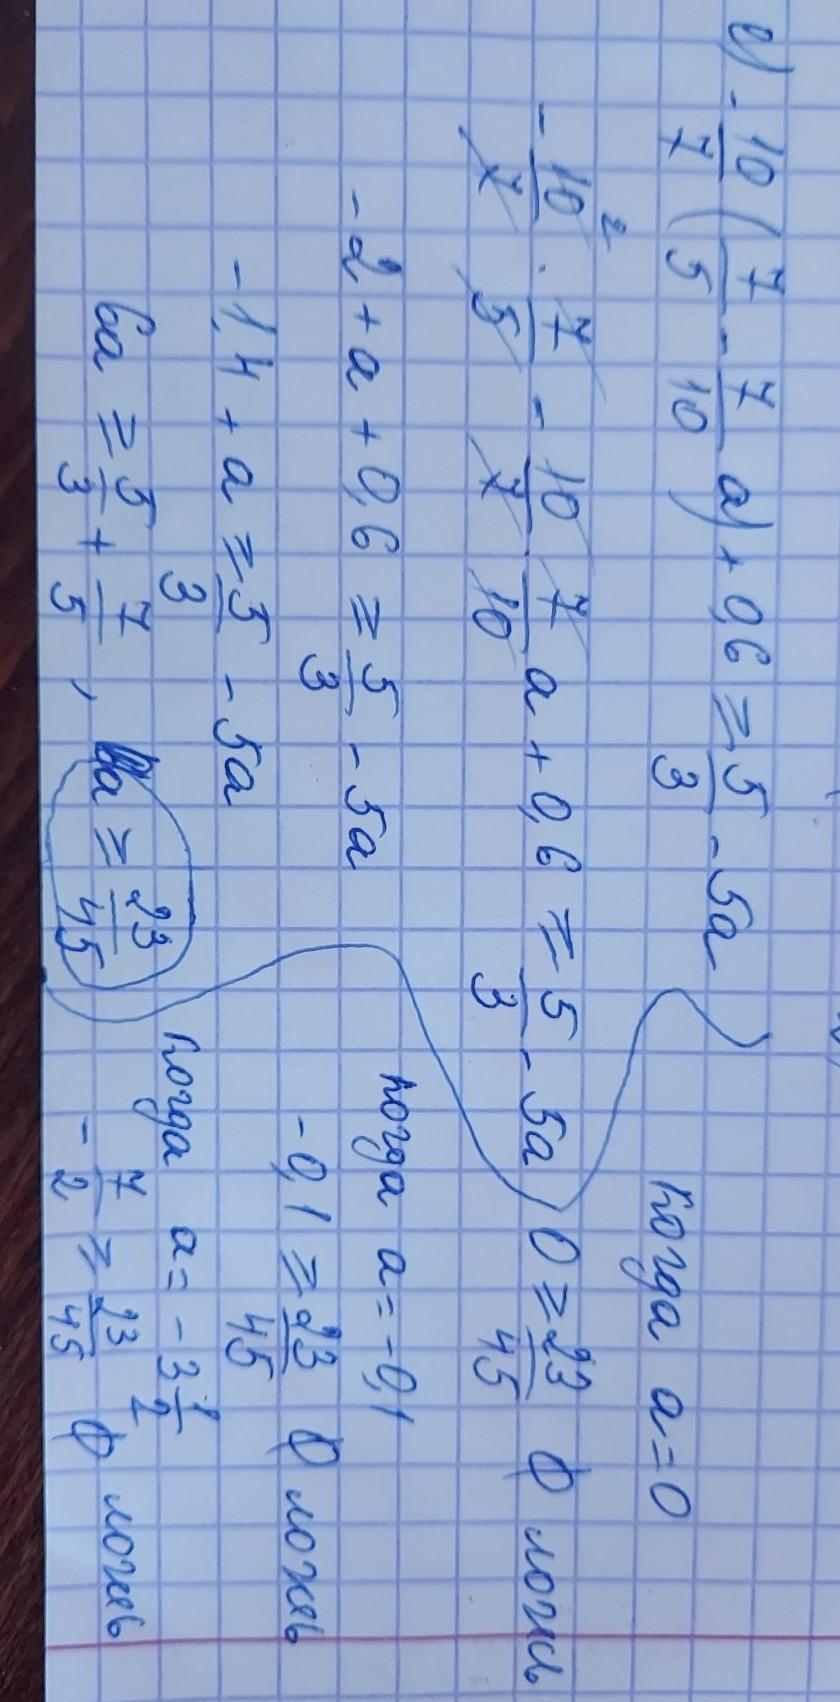 е) -10/7 (7/5 - 7/10 a) + 0,6 ≥ 5/3 - 5a
-10/7 ² · 7/5 - 10/7 7/10 a + 0,6 ≥ 5/3 - 5a
-2 + a + 0,6 ≥ 5/3 - 5a
-1,4 + a ≥ 5/3 - 5a
6a ≥ 5/3 + 7/5 , a ≥ 23/45
Когда a = 0
0 ≥ 23/45 0 ложь
когда a = -0,1
-0,1 ≥ 23/45 0 ложь
Когда a = -3 1/2
-7/2 ≥ 23/45 0 ложь